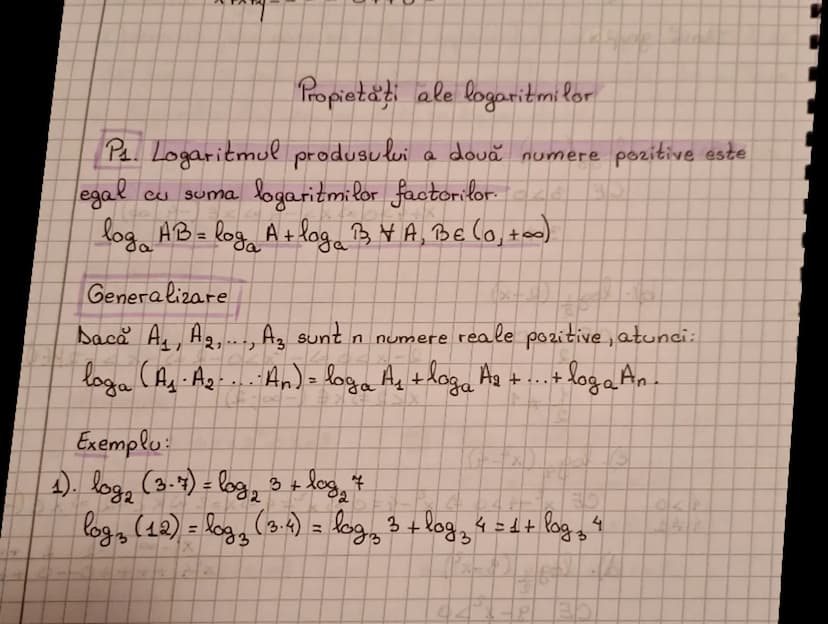 Propietăți ale logaritmilor
P1. Logaritmul produsului a două numere pozitive este
egal cu suma logaritmilor factorilor.
logₐ AB = logₐ A + logₐ B, ∀ A, B ∈ (0, +∞)
Generalizare
Dacă A₁, A₂, ..., A₃ sunt n numere reale pozitive, atunci:
logₐ (A₁ · A₂ · ... · Aₙ) = logₐ A₁ + logₐ A₂ + ... + logₐ Aₙ.
Exemplu:
1). log₂ (3·7) = log₂ 3 + log₂ 7
log₃ (12) = log₃ (3·4) = log₃ 3 + log₃ 4 = 1 + log₃ 4